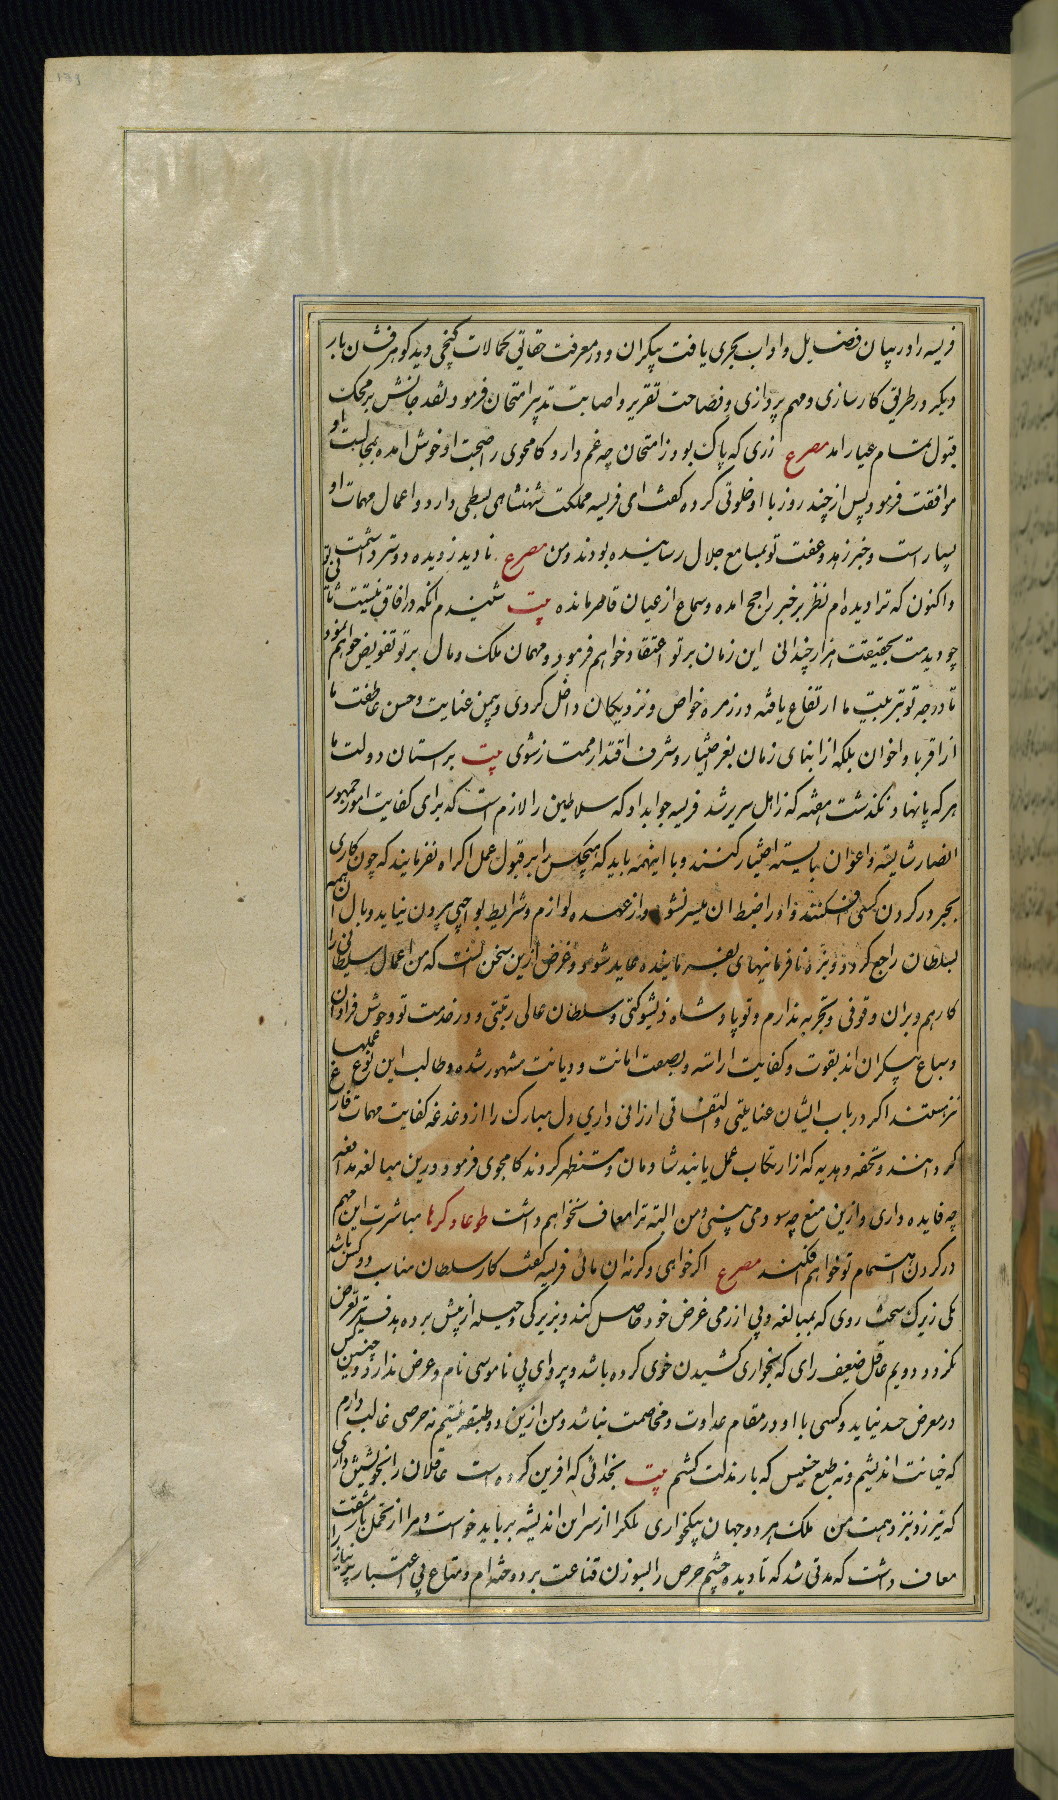 فریسه را در بیان فضایل و اداب بحری یافت بیکران و در معرفت حقایق کمالات گنجی دید گوهرفشان بار
دیگر در طریق کارسازی و مهم پردازی و فصاحت تقریر و اصابت تدبیر امتحان فرمود نقد جانش بر محک
قبول تمام عیار امد مصرع ازری که پاک بود ز امتحان چه غم دارد کامجوی را صحبت او خوش امده بمجالست او
موافقت فرمود پس از چند روز با او خلوتی کرده گفت ای فریسه مملکت شهنشاهی بسطی دارد و اعمال مهمات او
بسیار است و خبر زهد و عفت تو بمسامع جلال رسانیده بودند و من مصرع نادید ز دیده دوستر داشتمت
و اکنون که ترا دیده ام نظر بر خبر راجح امده و سماع از عیان قاصر مانده بیت شنیدم انکه در افاق نیستت ثانی
چو دیدمت بحقیقت هزار چندانی این زمان بر تو اعتقاد خواهم فرمود و مهمات ملک و مال بر تو تفویض خواهم نمود
تا درجه تو بتربیت ما ارتفاع یافته در زمره خواص و نزدیکان داخل گردی و بیمن عنایت و حسن عاطفت ما
از اقربا و اخوان بلکه از ابنای زمان بعز اختیار و شرف اقتدار ممتاز شوی بیت بر استان دولت ما
هر که پا نهاد نگذشت هفته که ز اهل سریر شد فریسه جواب داد که سلاطین را لازم است که برای کفایت امور جمهور
انصار شایسته و اعوان بایسته اختیار کنند و با اینهمه باید که هیچکس را بر قبول عمل اکراه نفرمایند که چون کاری
بجبر در گردن کسی افکنند و او را ضبط ان میسر نشود و از عهده لوازم و شرایط بواجبی بیرون نیاید وبال ان همه
بسلطان راجع گردد و بزه نافرمانیهای بفرماینده عاید شود و غرض ازین سخن انست که من اعمال سلطانی را
کارهم و بران وقوفی و تجربه ندارم و تو پادشاه ذیشوکتی و سلطان عالی رتبتی و در خدمت تو وحوش فراوان
و سباع بیکران اند بقوت و کفایت اراسته و بصفت امانت و دیانت مشهور شده و طالب این نوع عملها
نیز هستند اگر در باب ایشان عنایتی و التفاتی ارزانی داری دل مبارک را از دغدغه کفایت مهمات فارغ
گردانند و بتحفه و هدیه که از ارتکاب عمل یابند شادمان و مستظهر گردند کامجوی فرمود درین مبالغه مدافعه
چه فایده داری و ازین منع چه سود می بینی و من البته ترا معاف نخواهم داشت طوعا و کرها مباشرت این مهم
در گردن اهتمام تو خواهم افکند مصرع اگر خواهی و گرنه ان مائی فریسه گفت کار سلطان مناسب دو کس باشد
یکی زیرک سخت روی که بمبالغه و بی ازرمی غرض خود حاصل کند و بزیرکی و حیله از پیش برده هدف تیر تعرض
نگردد و دویم غافل ضعیف رای که بخواری کشیدن خوی کرده باشد و پروای بی ناموسی نام و عرض ندارد و چنین کس
در معرض حسد نیاید و کسی با او در مقام عداوت و مخاصمت نباشد و من ازین دو طبقه نیستم نه حرصی غالب دارم
که خیانت اندیشم و نه طبع خسیس که بار مذلت کشم بیت بخدائی که افرین کرده است عاقلان را بخویشتن داری
که نیرزد بنزد همت من ملک هر دو جهان بیکخواری ملک را از سر این اندیشه بر باید خواست و مرا از تحمل بار مشقت
معاف داشت که مدتی شد که تا دیده چشم حرص را بسوزن قناعت بر دوخته ام و متاع بی اعتبار